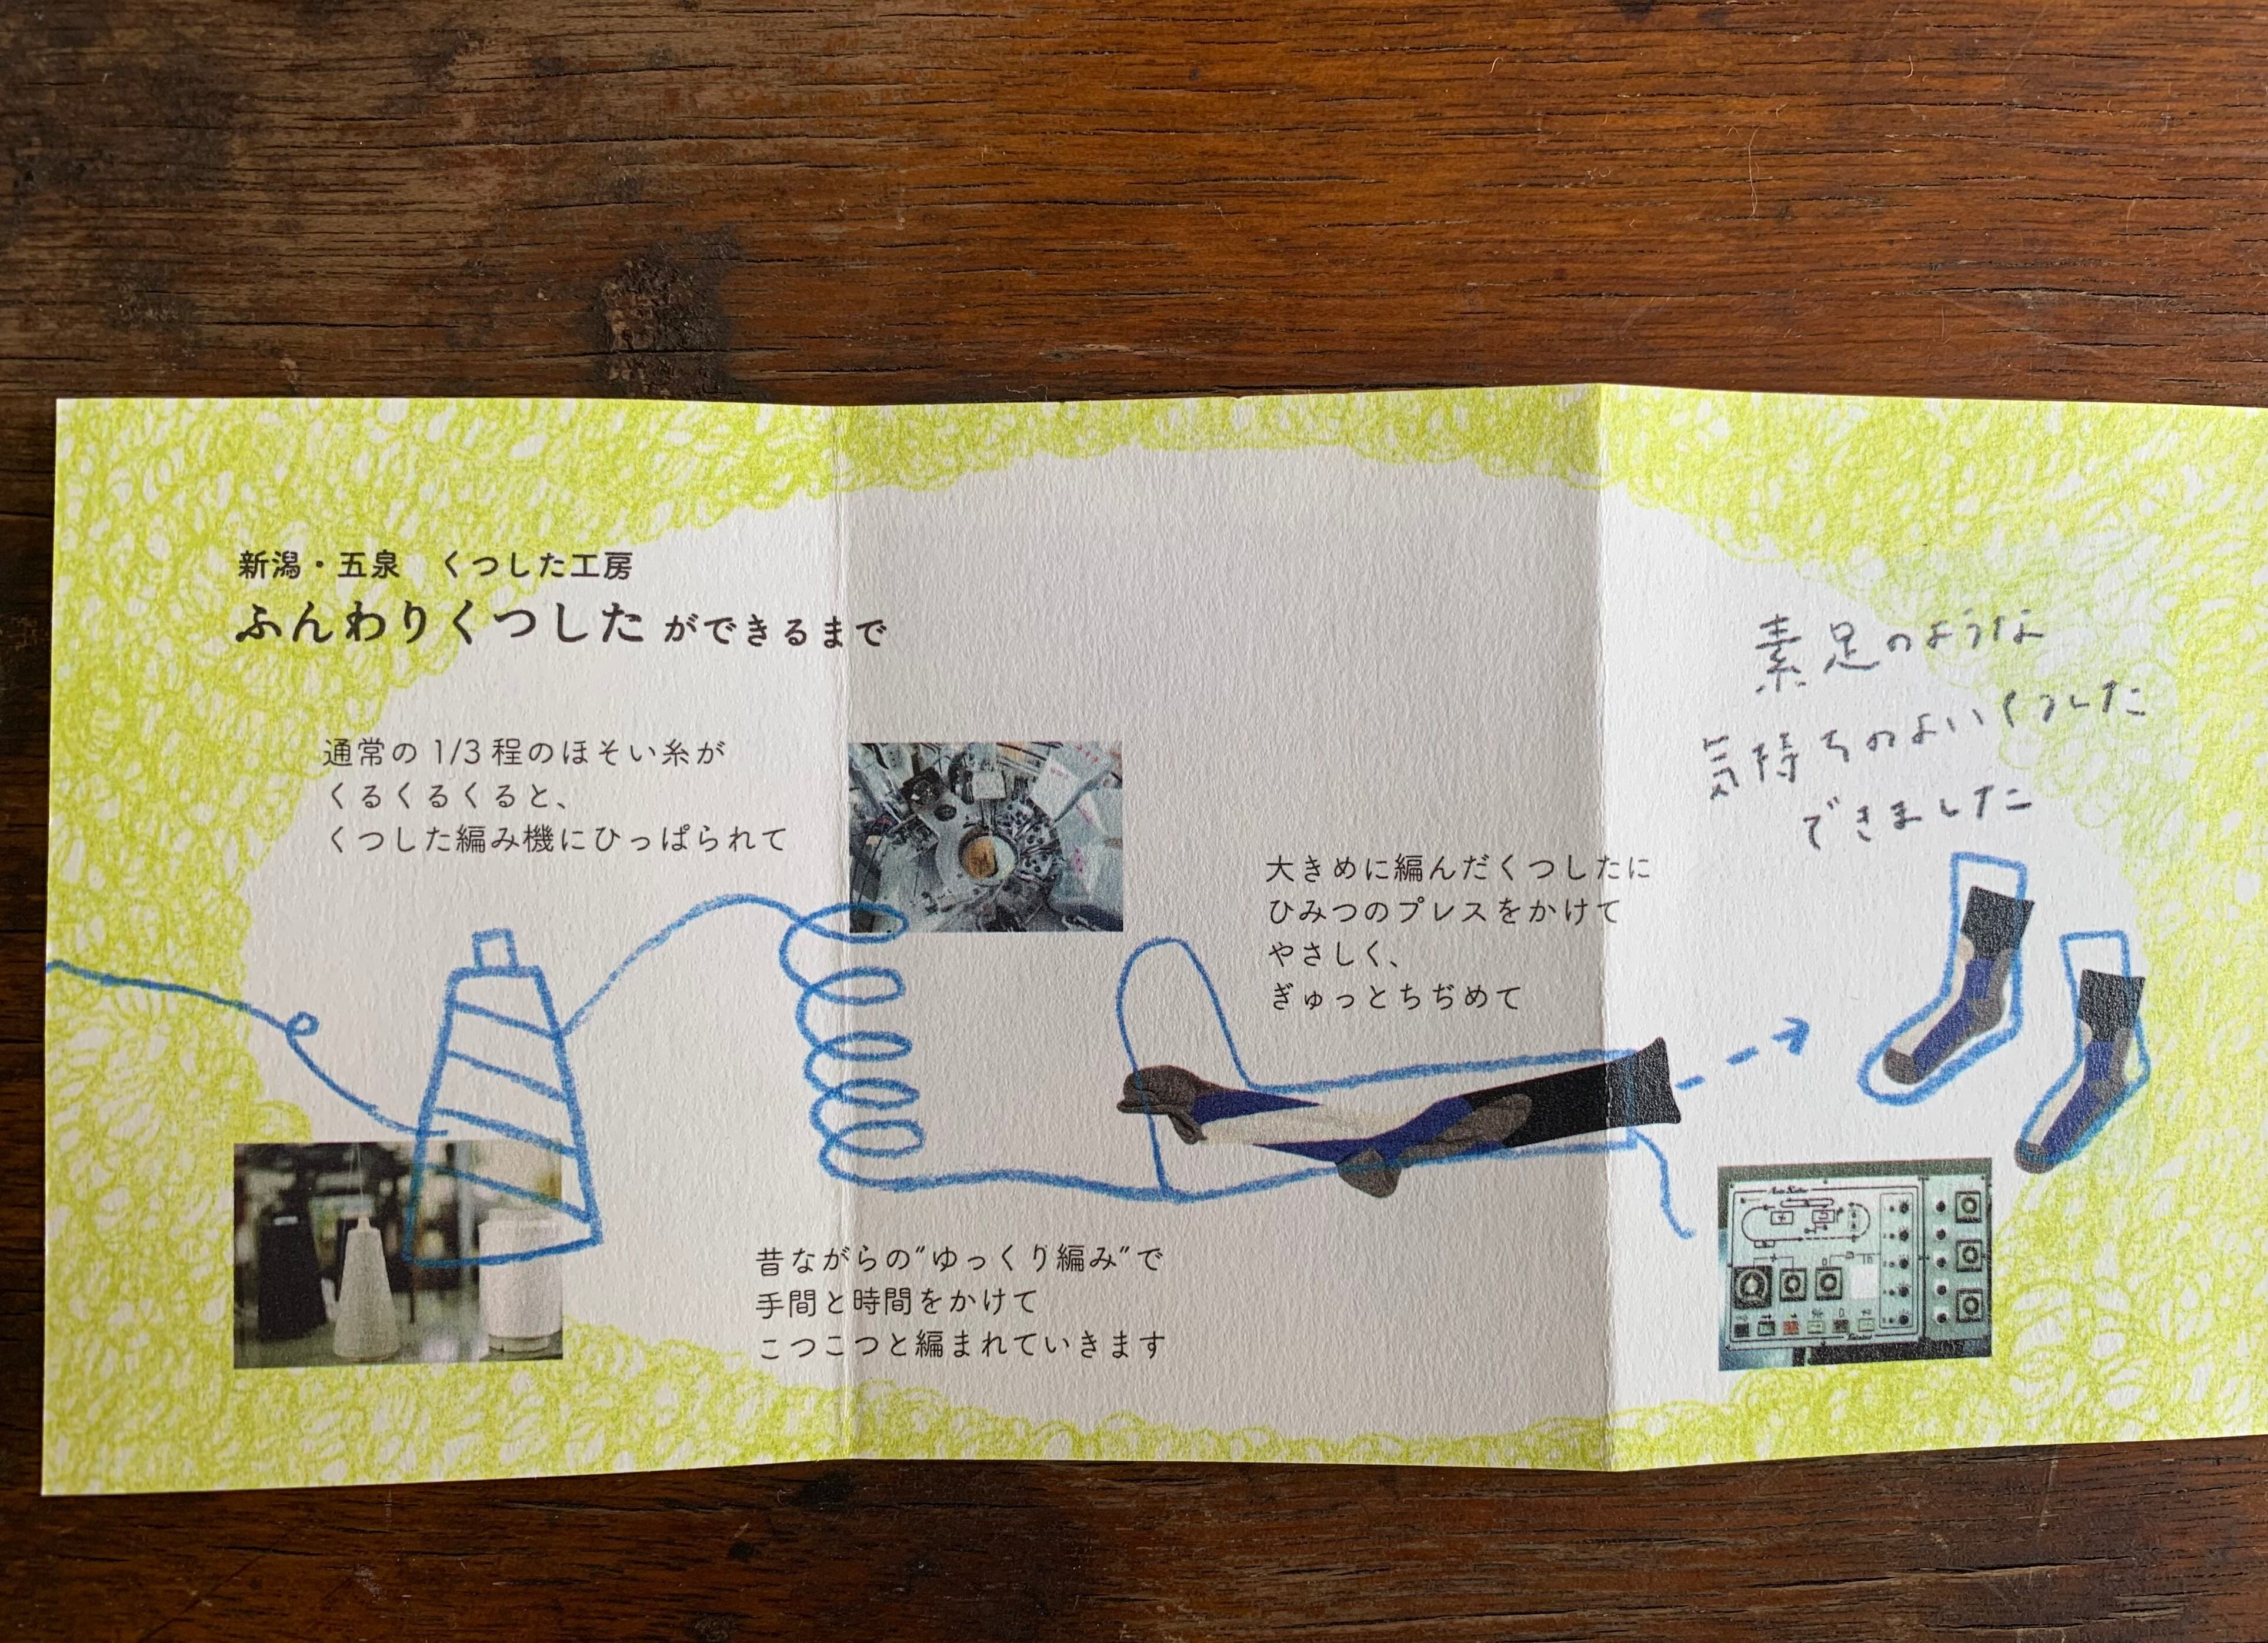 新潟・五泉　くつした工房
ふんわりくつしたができるまで
通常の 1/3 程のほそい糸が
くるくるくると、
くつした編み機にひっぱられて
昔ながらの"ゆっくり編み"で
手間と時間をかけて
こつこつと編まれていきます
大きめに編んだくつしたに
ひみつのプレスをかけて
やさしく、
ぎゅっとちぢめて
素足のような
気持ちのよいくつした
できました